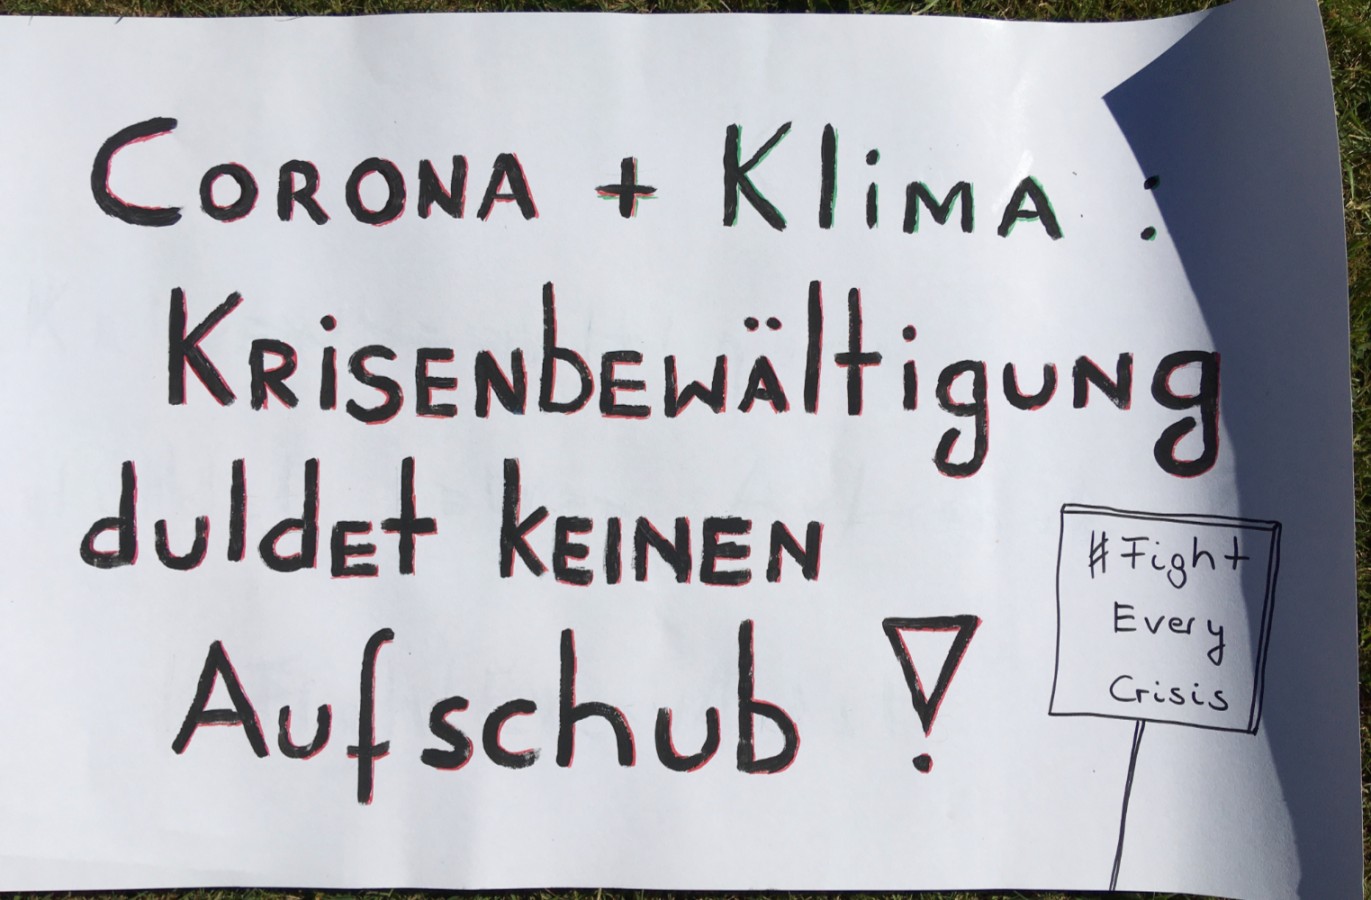 Corona + Klima :
Krisenbewältigung
duldet keinen
Aufschub !
#Fight
Every
Crisis